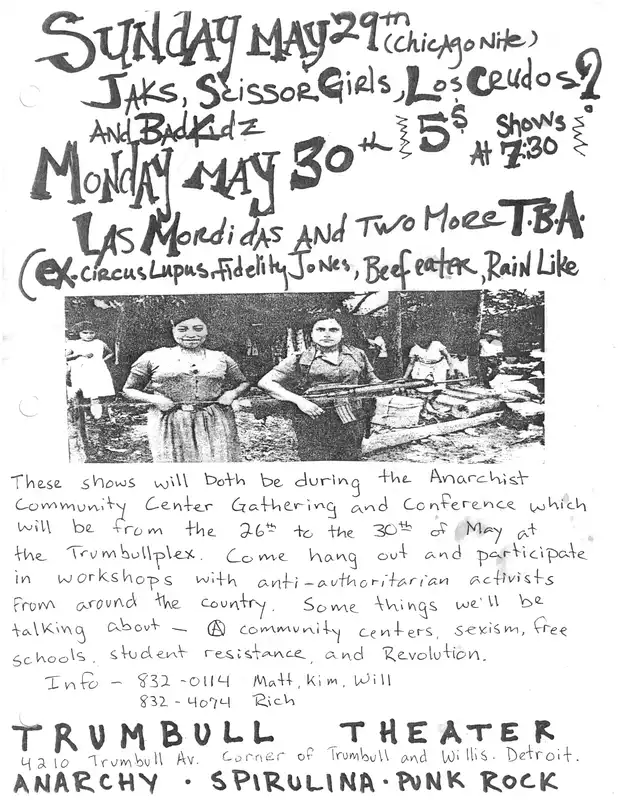 SUNDAY MAY 29th (ChicAgo Nite)
JAKS, SCISSOR GIRLS, LOS CRUDOS?
AND BADKIDZ
5$ Shows At 7:30
MONDAY MAY 30th
LAS MORDIDAS AND TWO MORE T.B.A.
(EX-CIRCUS LUPUS, FIDELITY JONES, BEEFEATER, RAIN LIKE
These shows will both be during the Anarchist
Community Center Gathering and Conference which
will be from the 26th to the 30th of May at
the Trumbullplex. Come hang out and participate
in workshops with anti-authoritarian activists
from around the country. Some things we'll be
talking about — Ⓐ community centers, sexism, free
schools, student resistance, and Revolution.
Info - 832-0114 Matt, Kim, Will
832-4074 Rich
TRUMBULL THEATER
4210 Trumbull Av. Corner of Trumbull and Willis. Detroit.
ANARCHY · SPIRULINA · PUNK ROCK